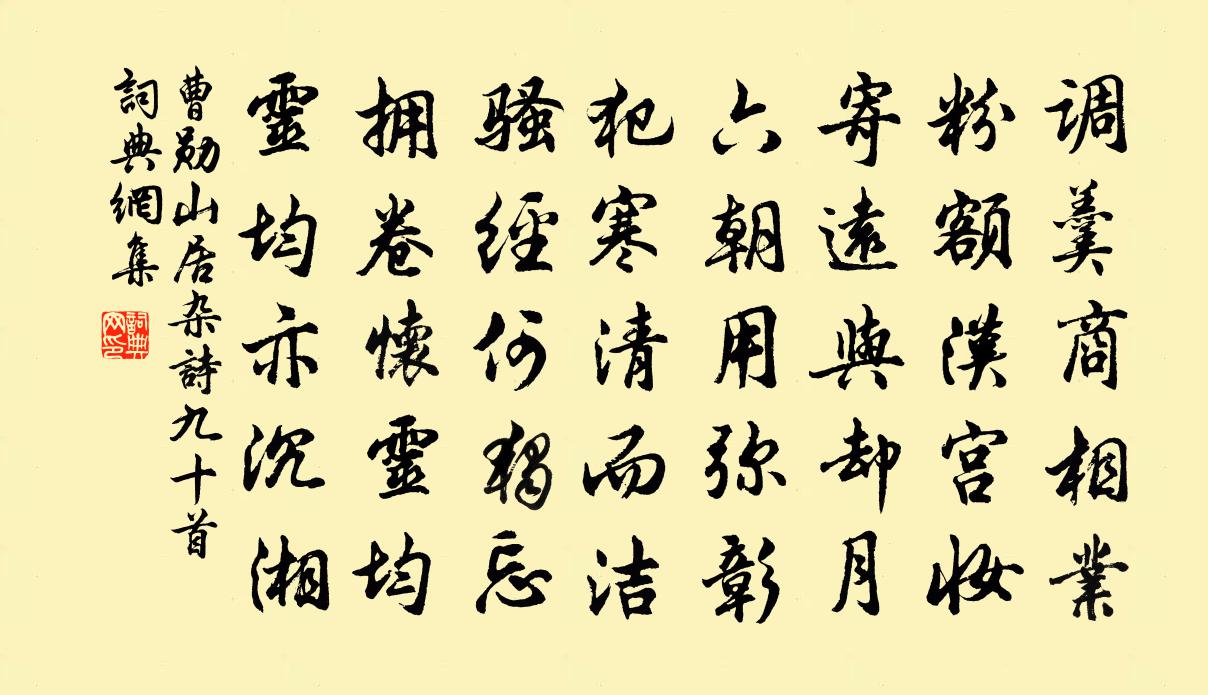 调羹商相業
粉额漢宫妆
寄遠與却月
六朝用弥彰
犯寒清而洁
骚經何独忘
拥卷懷靈均
靈均亦沉湘
曹勋山居杂詩九十首
詞典網集
詞典网印